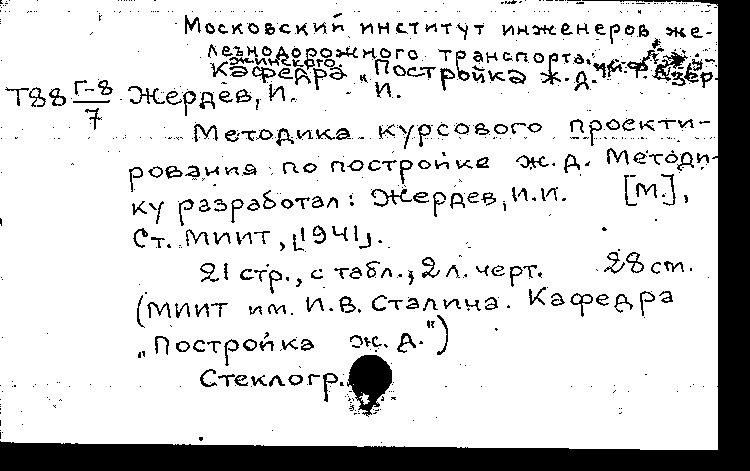 Московский институт инженеров же-
лезнодорожного транспорта. им. Ф. Дзер-
жинского.
Кафедра „Постройка ж. д.
Т88 Г-8/7 Жердев, И. И.
Методика курсового проекти-
рования по постройке ж. д. Методи-
ку разработал: Жердев, И. И. [М.],
Ст. МИИТ, [1941].
21 стр., с табл.; 2 л. черт. 28 cm.
(МИИТ им. И. В. Сталина. Кафедра
„Постройка ж. д.")
Стеклогр.